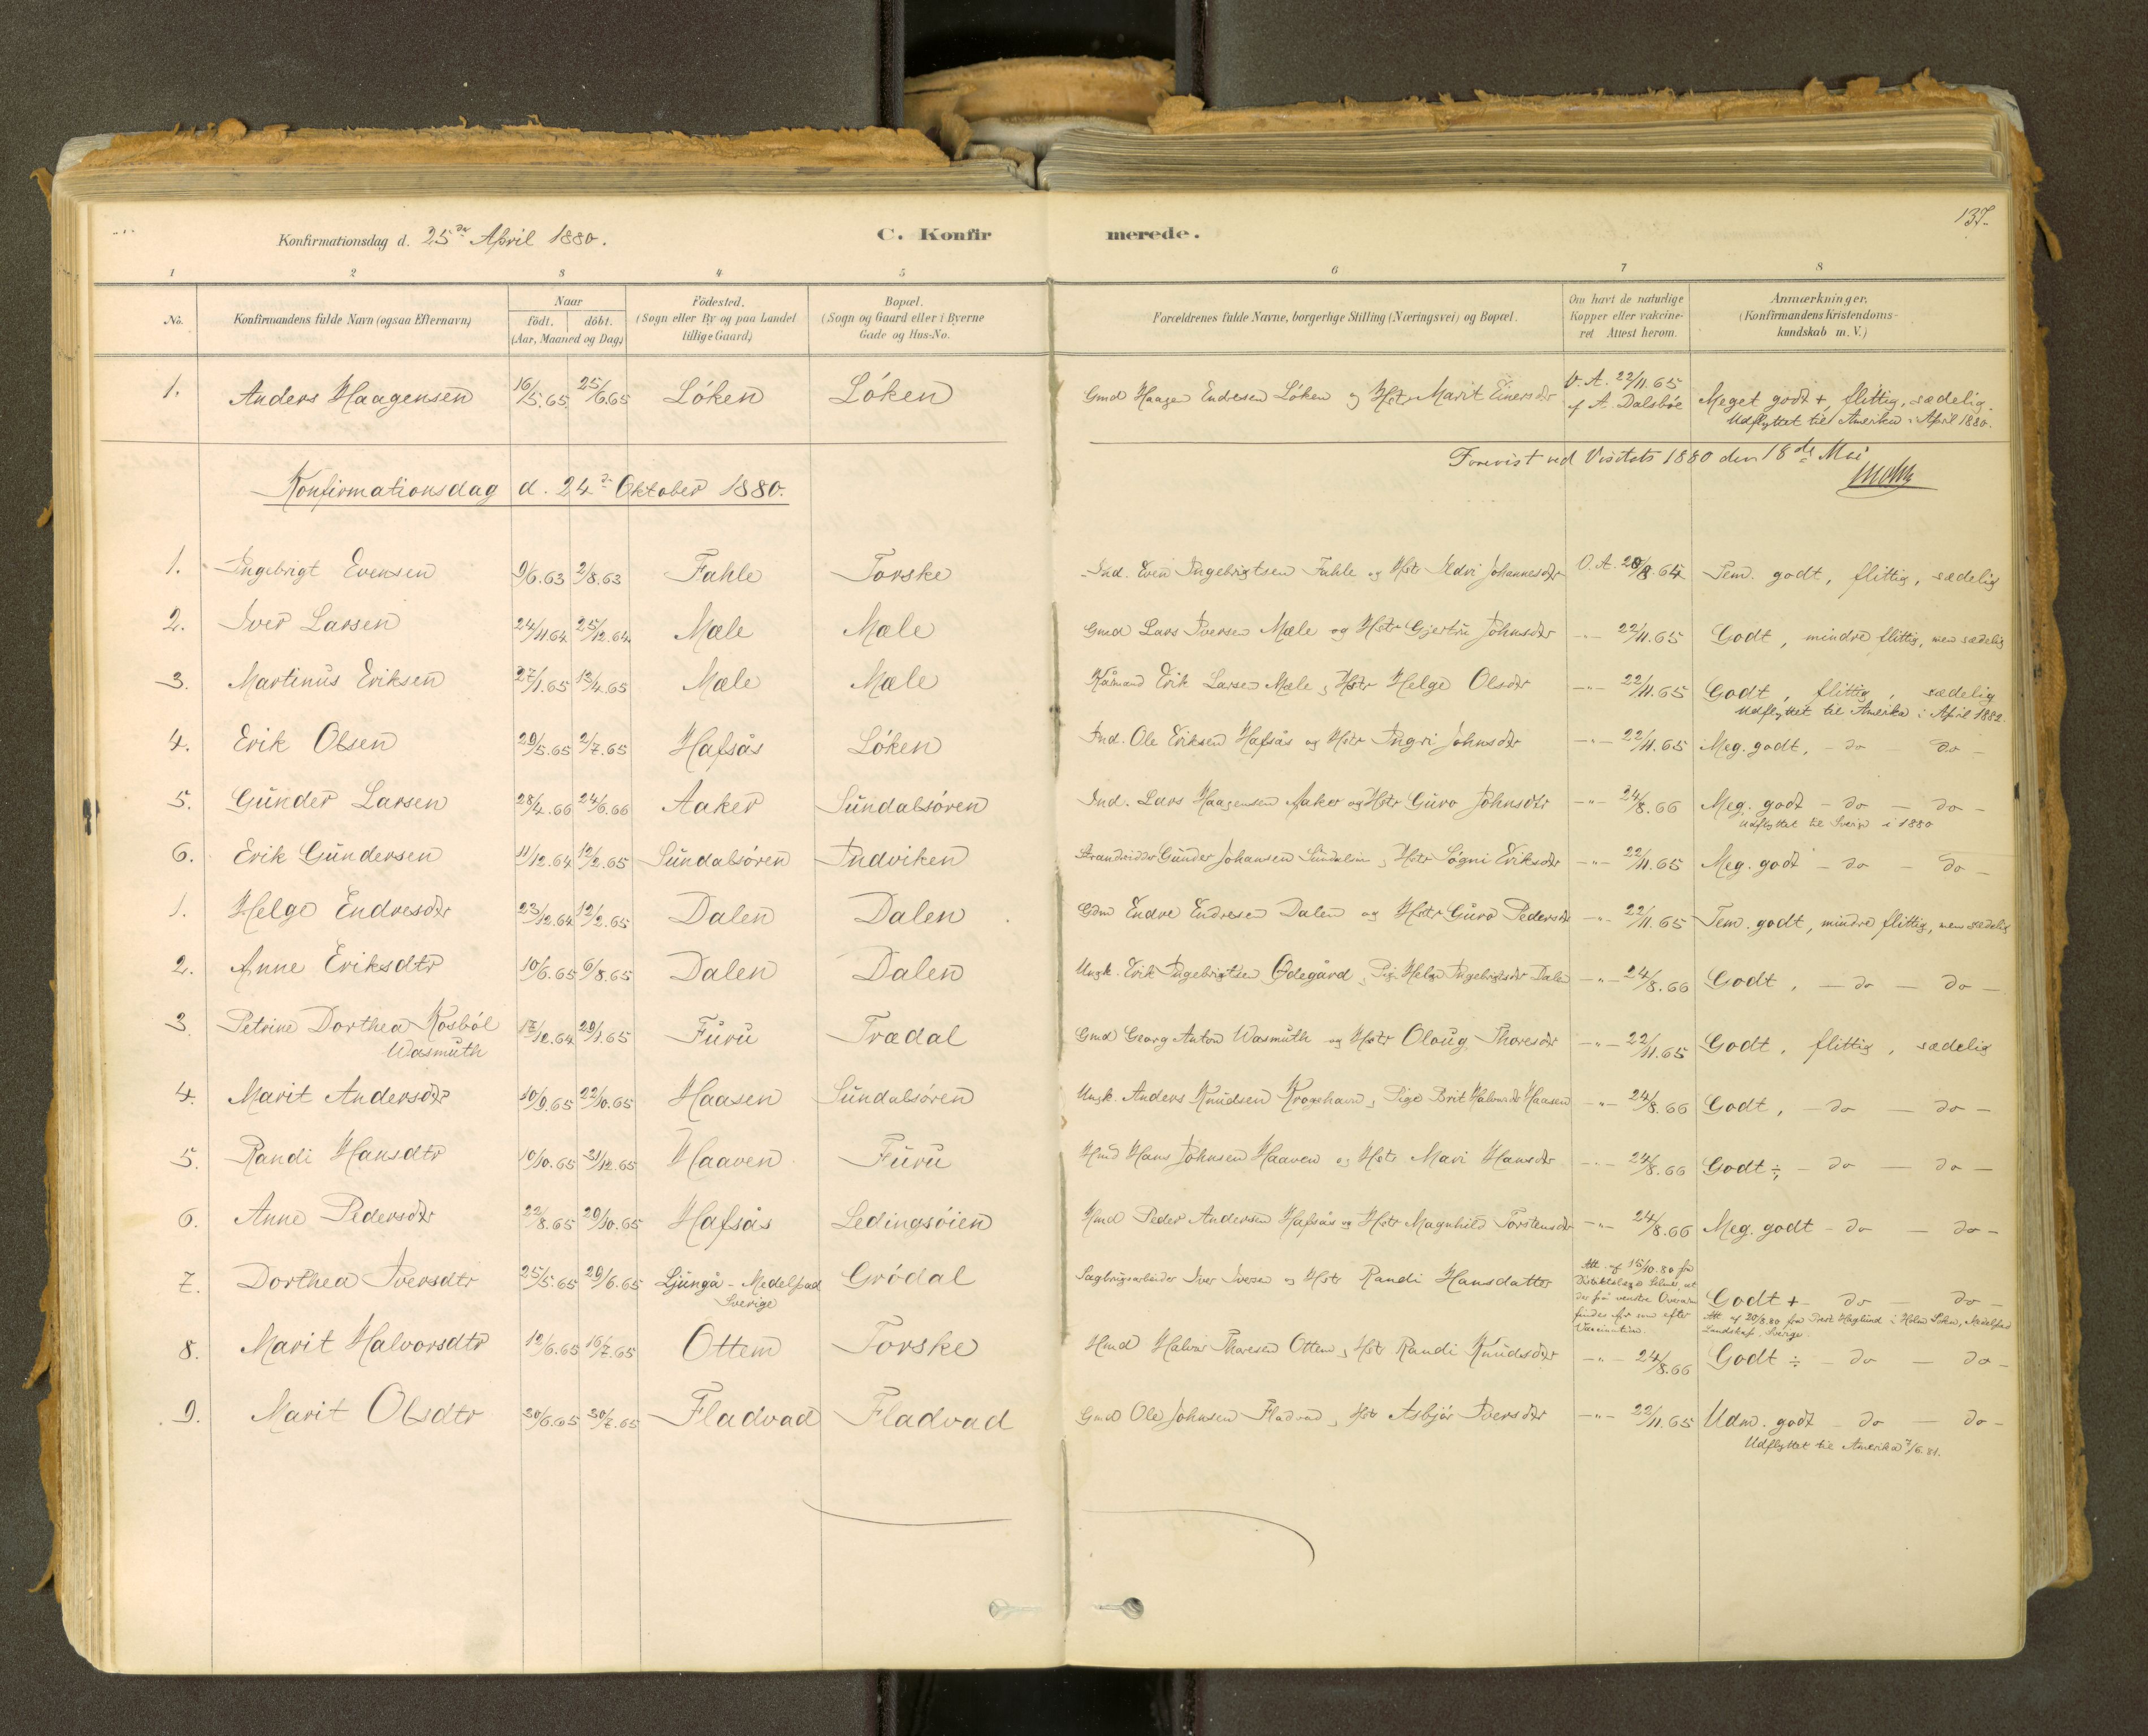 137.
Konfirmationsdag d. 25de April 1880. C. Konfirmerede.
1 2 3 4 5 6 7 8
No. Konfirmandens fulde Navn (ogsaa Efternavn) Naar født. døbt. (Aar, Maaned og Dag) Födested. (Sogn eller By og paa Landet tillige Gaard) Bopæl. (Sogn og Gaard eller i Byerne Gade og Hus-No. Forældrenes fulde Navne, borgerlige Stilling (Næringsvei) og Bopæl. Om havt de naturlige Kopper eller vakcineret Attest herom. Anmærkninger. (Konfirmandens Kristendomskundskab m. V.)
1. Anders Haagensen 16/5.65 25/6.65 Löken Löken Gmd Haagen Endresen Löken og Hstr Marit Einersdtr V. A. 22/11.65 af A. Dalsböe Meget godt +, flittig, sædelig.
Udflyttet til Amerika i April 1880.
Forevist ved Visitats 1880 den 18de Mai
Konfirmationsdag d. 24de Oktober 1880.
1. Ingebrigt Evensen 9/6.63 2/8.63 Fahle Torske Ind. Even Ingebrigtsen Fahle og Hstr Johannesdtr Tem. godt, flittig, sædelig
2. Iver Larsen 24/11.64 25/12.64 Mæle Mæle Gmd Lars Iversen Mæle og Hstr Gjertru Johnsdtr -"- 22/11.65 Godt, mindre flittig, men sædelig
3. Martinus Eriksen 27/1.65 13/4.65 Mæle Mæle Kårmand Erik Larsen Mæle, Hstr Helge Olsdtr -"- 22/11.65 Godt, flittig, sædelig
Udflyttet til Amerika i April 1882.
4. Erik Olsen 29/5.65 2/7.65 Hafsås Löken Ind. Ole Eriksen Hafsås og Hstr Ingri Johnsdtr -"- 22/11.65 Meg. godt, - do do -
5. Gunder Larsen 28/4.66 24/6.66 Aaker Sundalsören Ind. Lars Haagensen Aaker og Hstr Guro Johnsdtr -"- 24/8.66 Meg. godt - do - do -
Udflyttet til Sverige i 1880
6. Erik Gundersen 11/12.64 12/2.65 Sundalsören Indviken Strandsidder Gunder Johansen og Hstr Sögni Eriksdtr -"- 22/11.65 Meg. godt - do - do -
1. Helge Endresdtr 23/12.64 12/2.65 Dalen Dalen Gdm Endre Endresen Dalen og Hstr Guro Pedersdtr -"- 22/11.65 Tem. godt, mindre flittig, men sædelig
2. Anne Eriksdtr 10/6.65 6/8.65 Dalen Dalen Ungk. Erik Ingebrigtsen Ödegård, Pig. Helge Ingebrigtsdtr Dalen -"- 24/8.66 Godt, - do - do -
3. Petrine Dorthea Kosböl 17/12.64 29/1.65 Furu Trædal Gmd Georg Anton Wasmuth og Hstr Oloug Thoresdtr -"- 22/11.65 Godt, flittig, sædelig
Wasmuth
4. Marit Andersdtr 10/9.65 22/10.65 Haasen Sundalsören Ungk. Anders Knudsen Krogshavn, Pige Brit Halvorsdtr Haasen -"- 24/8.66 Godt, - do - do -
5. Randi Hansdtr 10/10.65 31/12.65 Haaven Furu Hmd Hans Johnsen Haaven og Hstr Mari Hansdtr -"- 24/8.66 Godt ÷, - do - do -
6. Anne Pedersdtr 22/8.65 29/10.65 Hafsås Ledingsöien Hmd Peder Andersen Hafsås og Hstr Magnhild Torstensdtr -"- 24/8.66 Meg. godt - do - do -
7. Dorthea Iversdtr 25/5.65 29/6.65 Ljungå - Medelpad Sverige Grödal Sagbrugsarbeider Iver Iversen og Hstr Randi Hansdatter Att. af 15/10.80 fra der på venstre findes Ar som efter Vaccination. Godt + - do - do -
Att. af 20/8.80 fra Præst Haglund i Holm Sokn, Medelpad Landskap, Sverige.
8. Marit Halvorsdtr 12/6.65 16/7.65 Ottem Torske Hmd Halvor Thoresen Ottem, Hstr Randi Knudsdtr -"- 24/8.66 Godt ÷ - do - do -
9. Marit Olsdtr 30/6.65 30/7.65 Fladvad Fladvad Gmd Ole Johnsen Fladvad, Hstr Asbjör Iversdtr -"- 22/11.65 Udm. godt - do - do -
Udflyttet til Amerika 7/6.81.